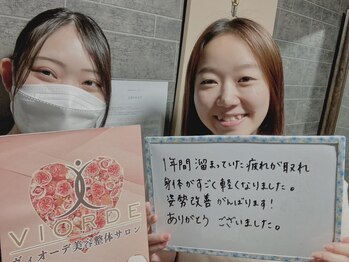 VIORDE
ヴィオーデ美容整体サロン
1年間溜まっていた疲れが取れ
身体がすごく軽くなりました。
姿勢改善がんばります!
ありがとうございました。